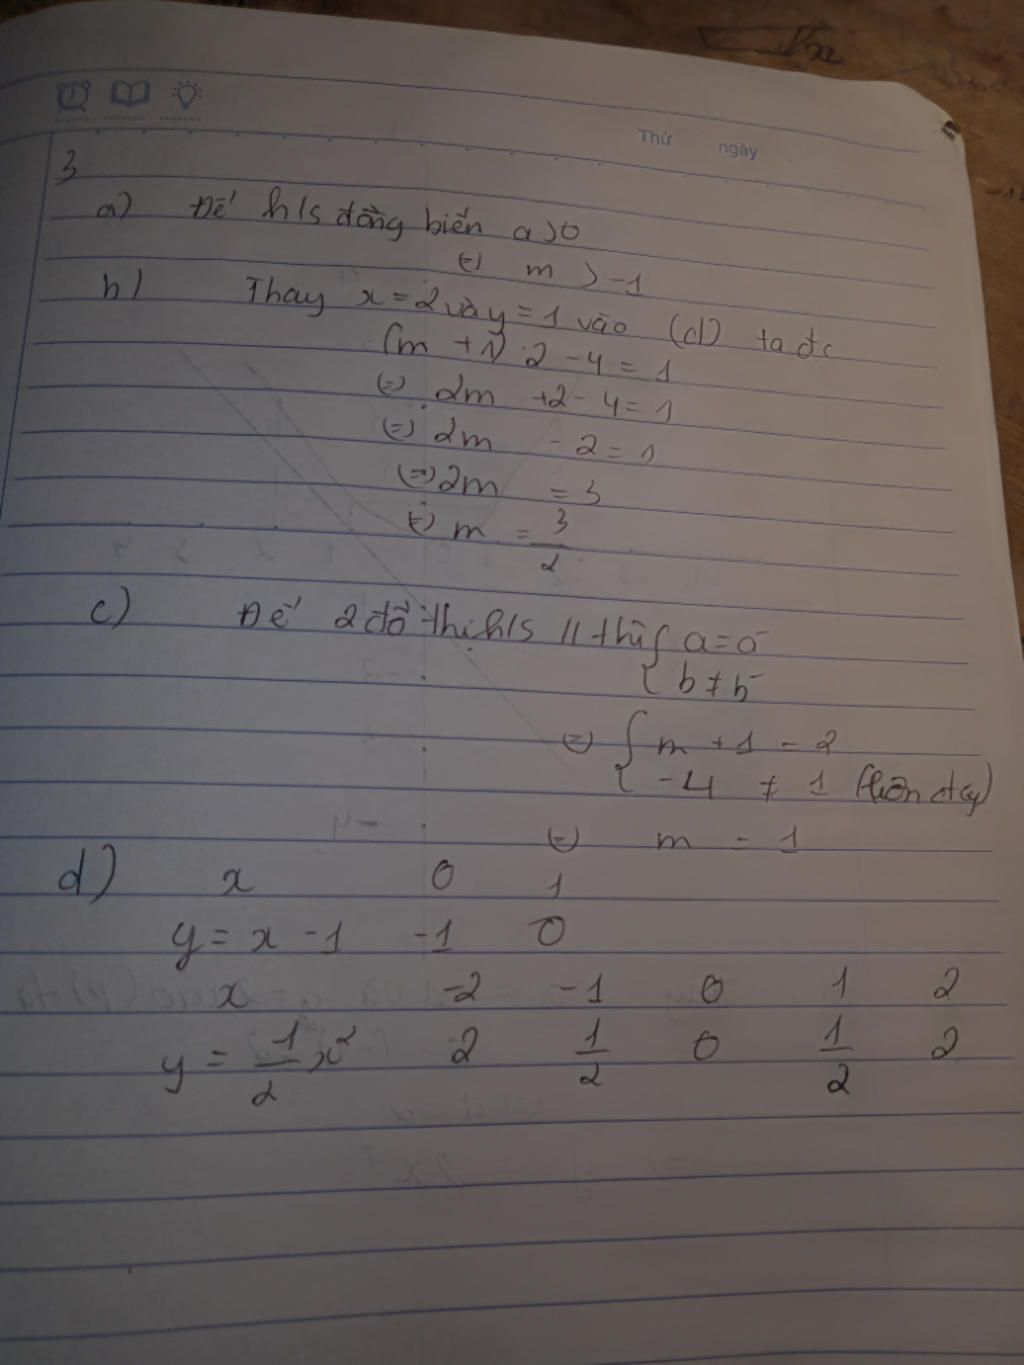 Thứ ngày
3
a) Để h/s đồng biến a>0
(=) m > -1
b) Thay x = 2 và y = 1 vào (d) ta đc
(m + 1) . 2 - 4 = 1
(=) 2m + 2 - 4 = 1
(=) 2m - 2 = 1
(=) 2m = 3
(=) m = 3/2
c) Để 2 đồ thị h/s // thì { a = a'
b ≠ b'
(=) { m + 1 = 2
-4 ≠ 1 (luôn đúng)
(=) m = 1
d) x 0 1
y = x - 1 -1 0
x -2 -1 0 1 2
y = 1/2 x² 2 1/2 0 1/2 2